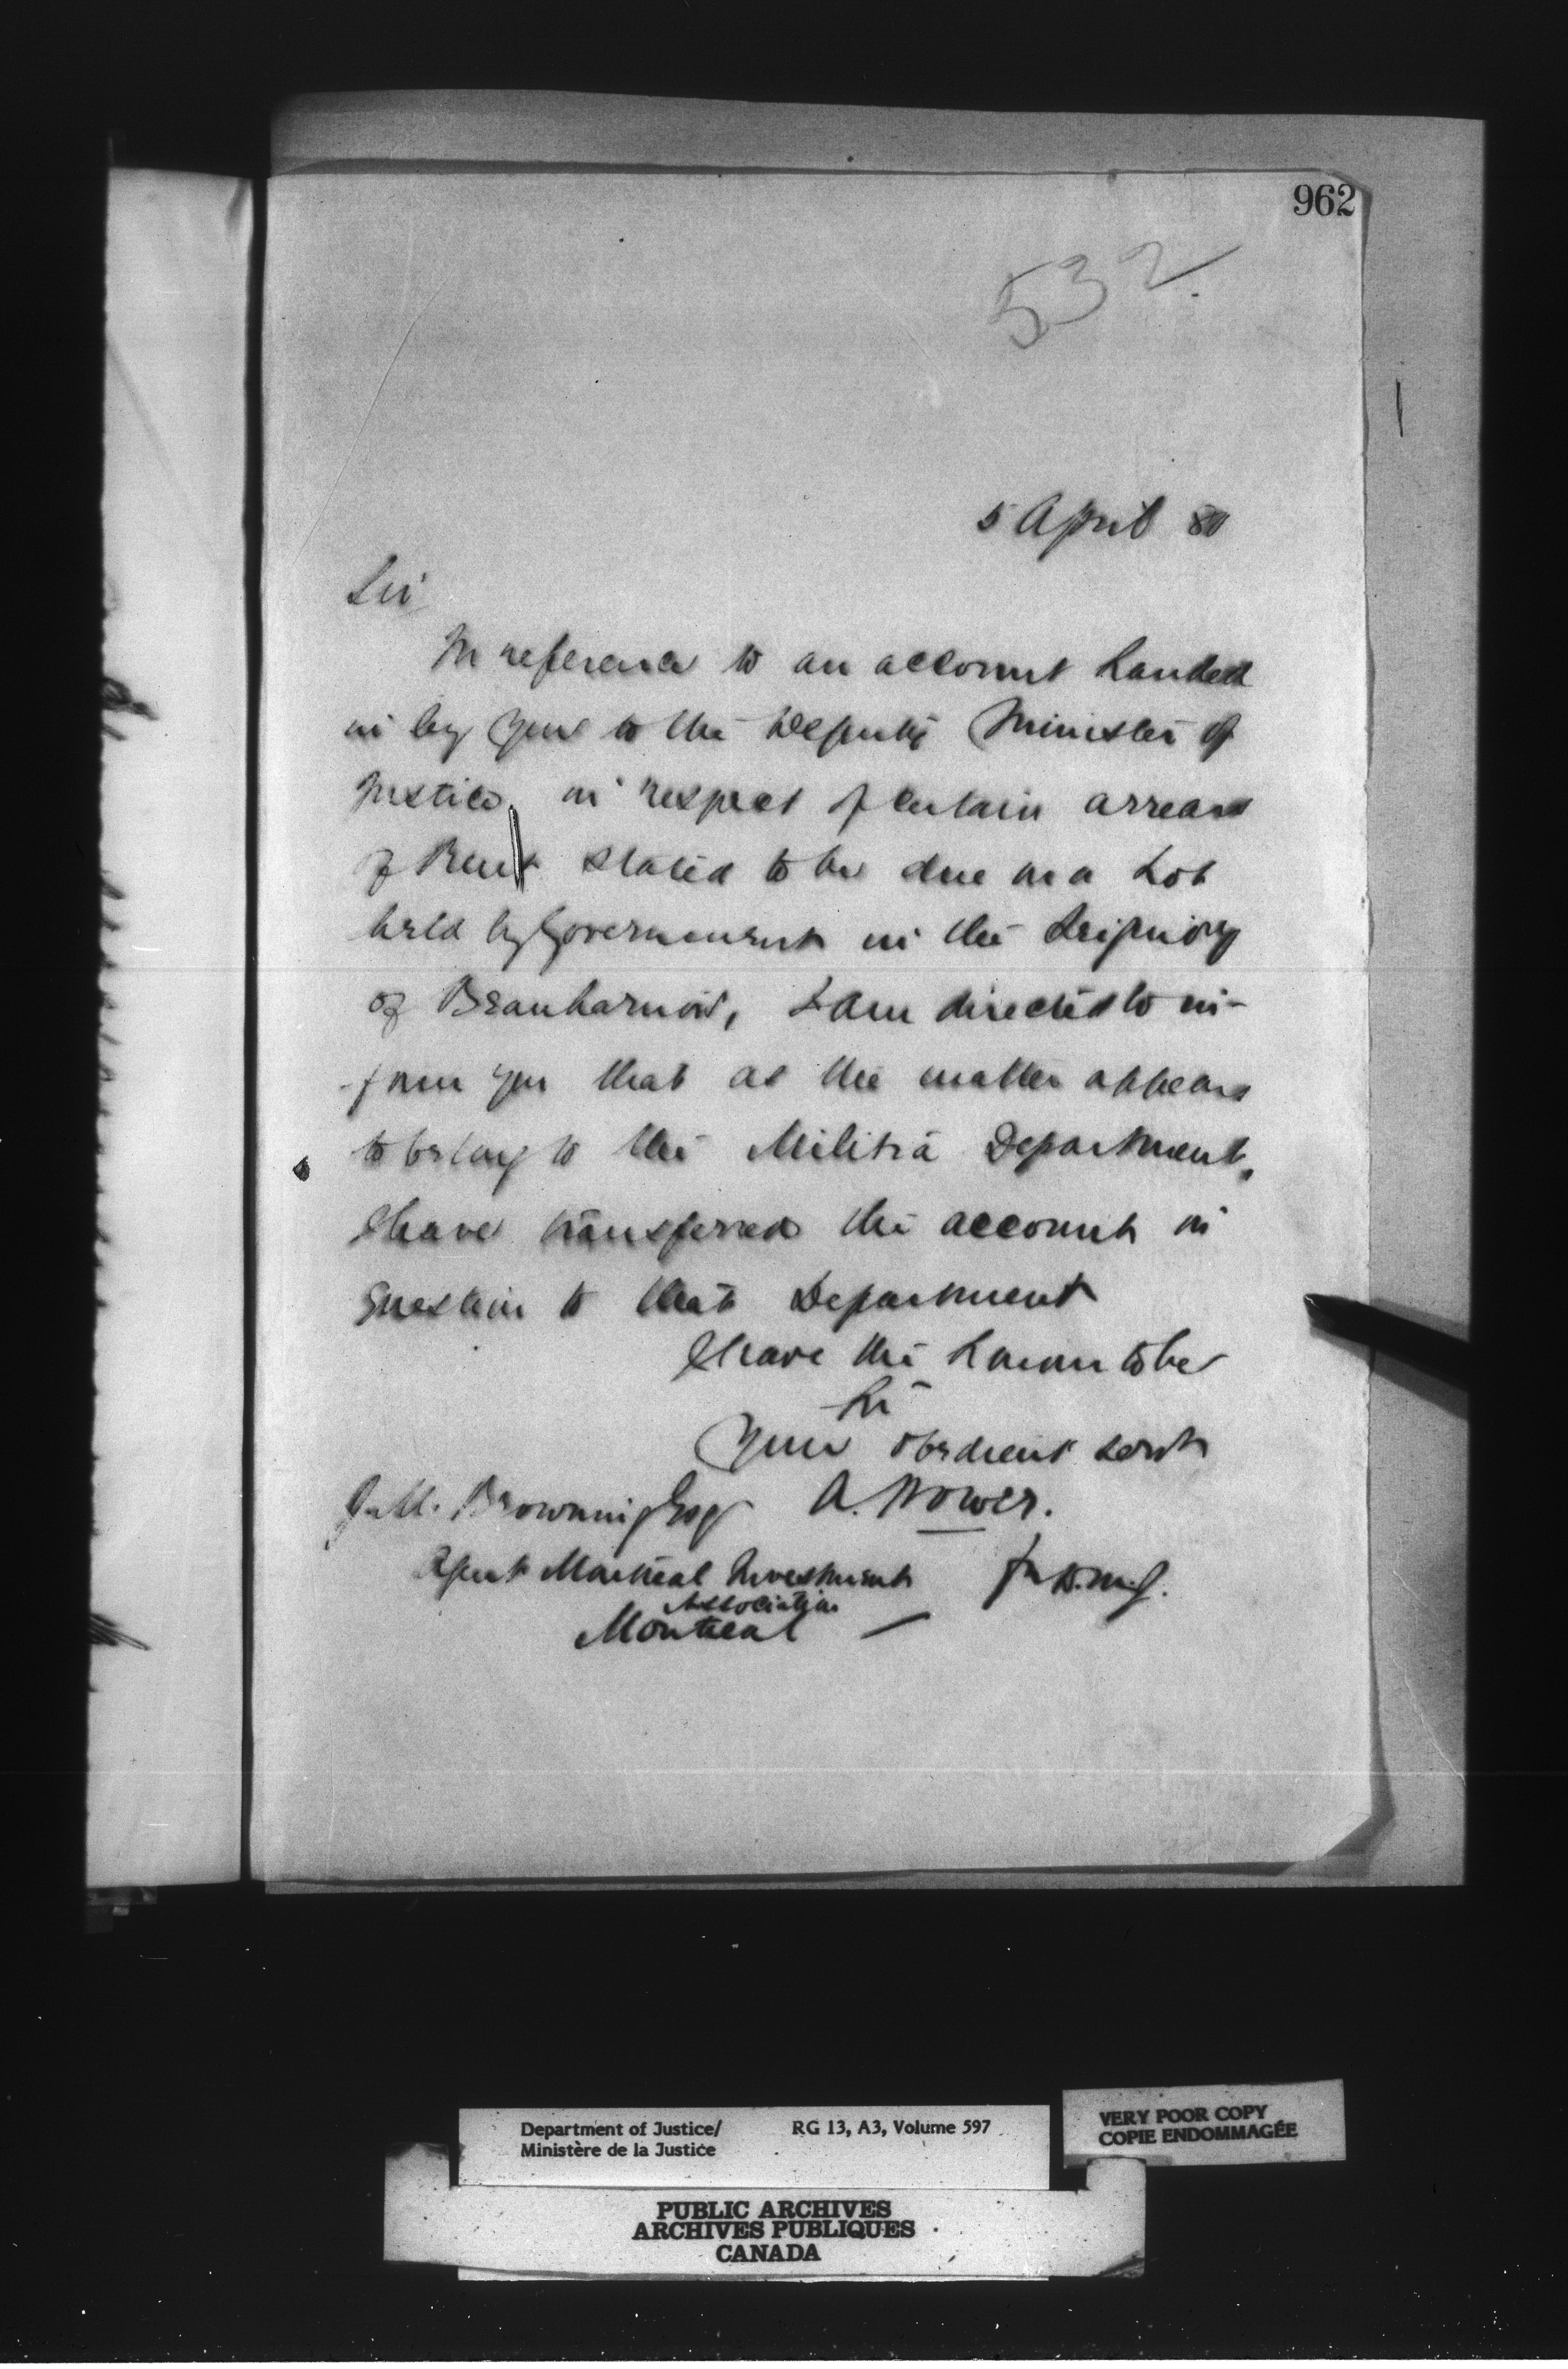 962
532
5 April 80
Sir
In reference to an account handed
in by you to the Deputy Minister of
Justice, in respect of certain arrears
of Rent stated to be due on a Lot
held by Government in the Seigniory
of Beauharnois, I am directed to in-
-form you that as the matter appears
to belong to the Militia Department,
I have transferred the account in
question to that Department
I have the honour to be
Sir
Your obedient servt
A. Power.
for D.M.J.
J.M. Browning Esq
Agent Montreal Investment
Association
Montreal
Department of Justice/
Ministère de la Justice
RG 13, A3, Volume 597
VERY POOR COPY
COPIE ENDOMMAGÉE
PUBLIC ARCHIVES
ARCHIVES PUBLIQUES
CANADA